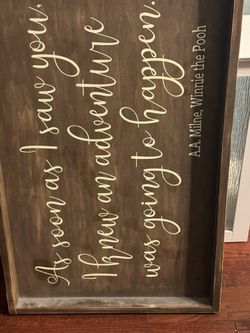 As soon as I saw you,
I knew an adventure
was going to happen.
A.A. Milne, Winnie the Pooh